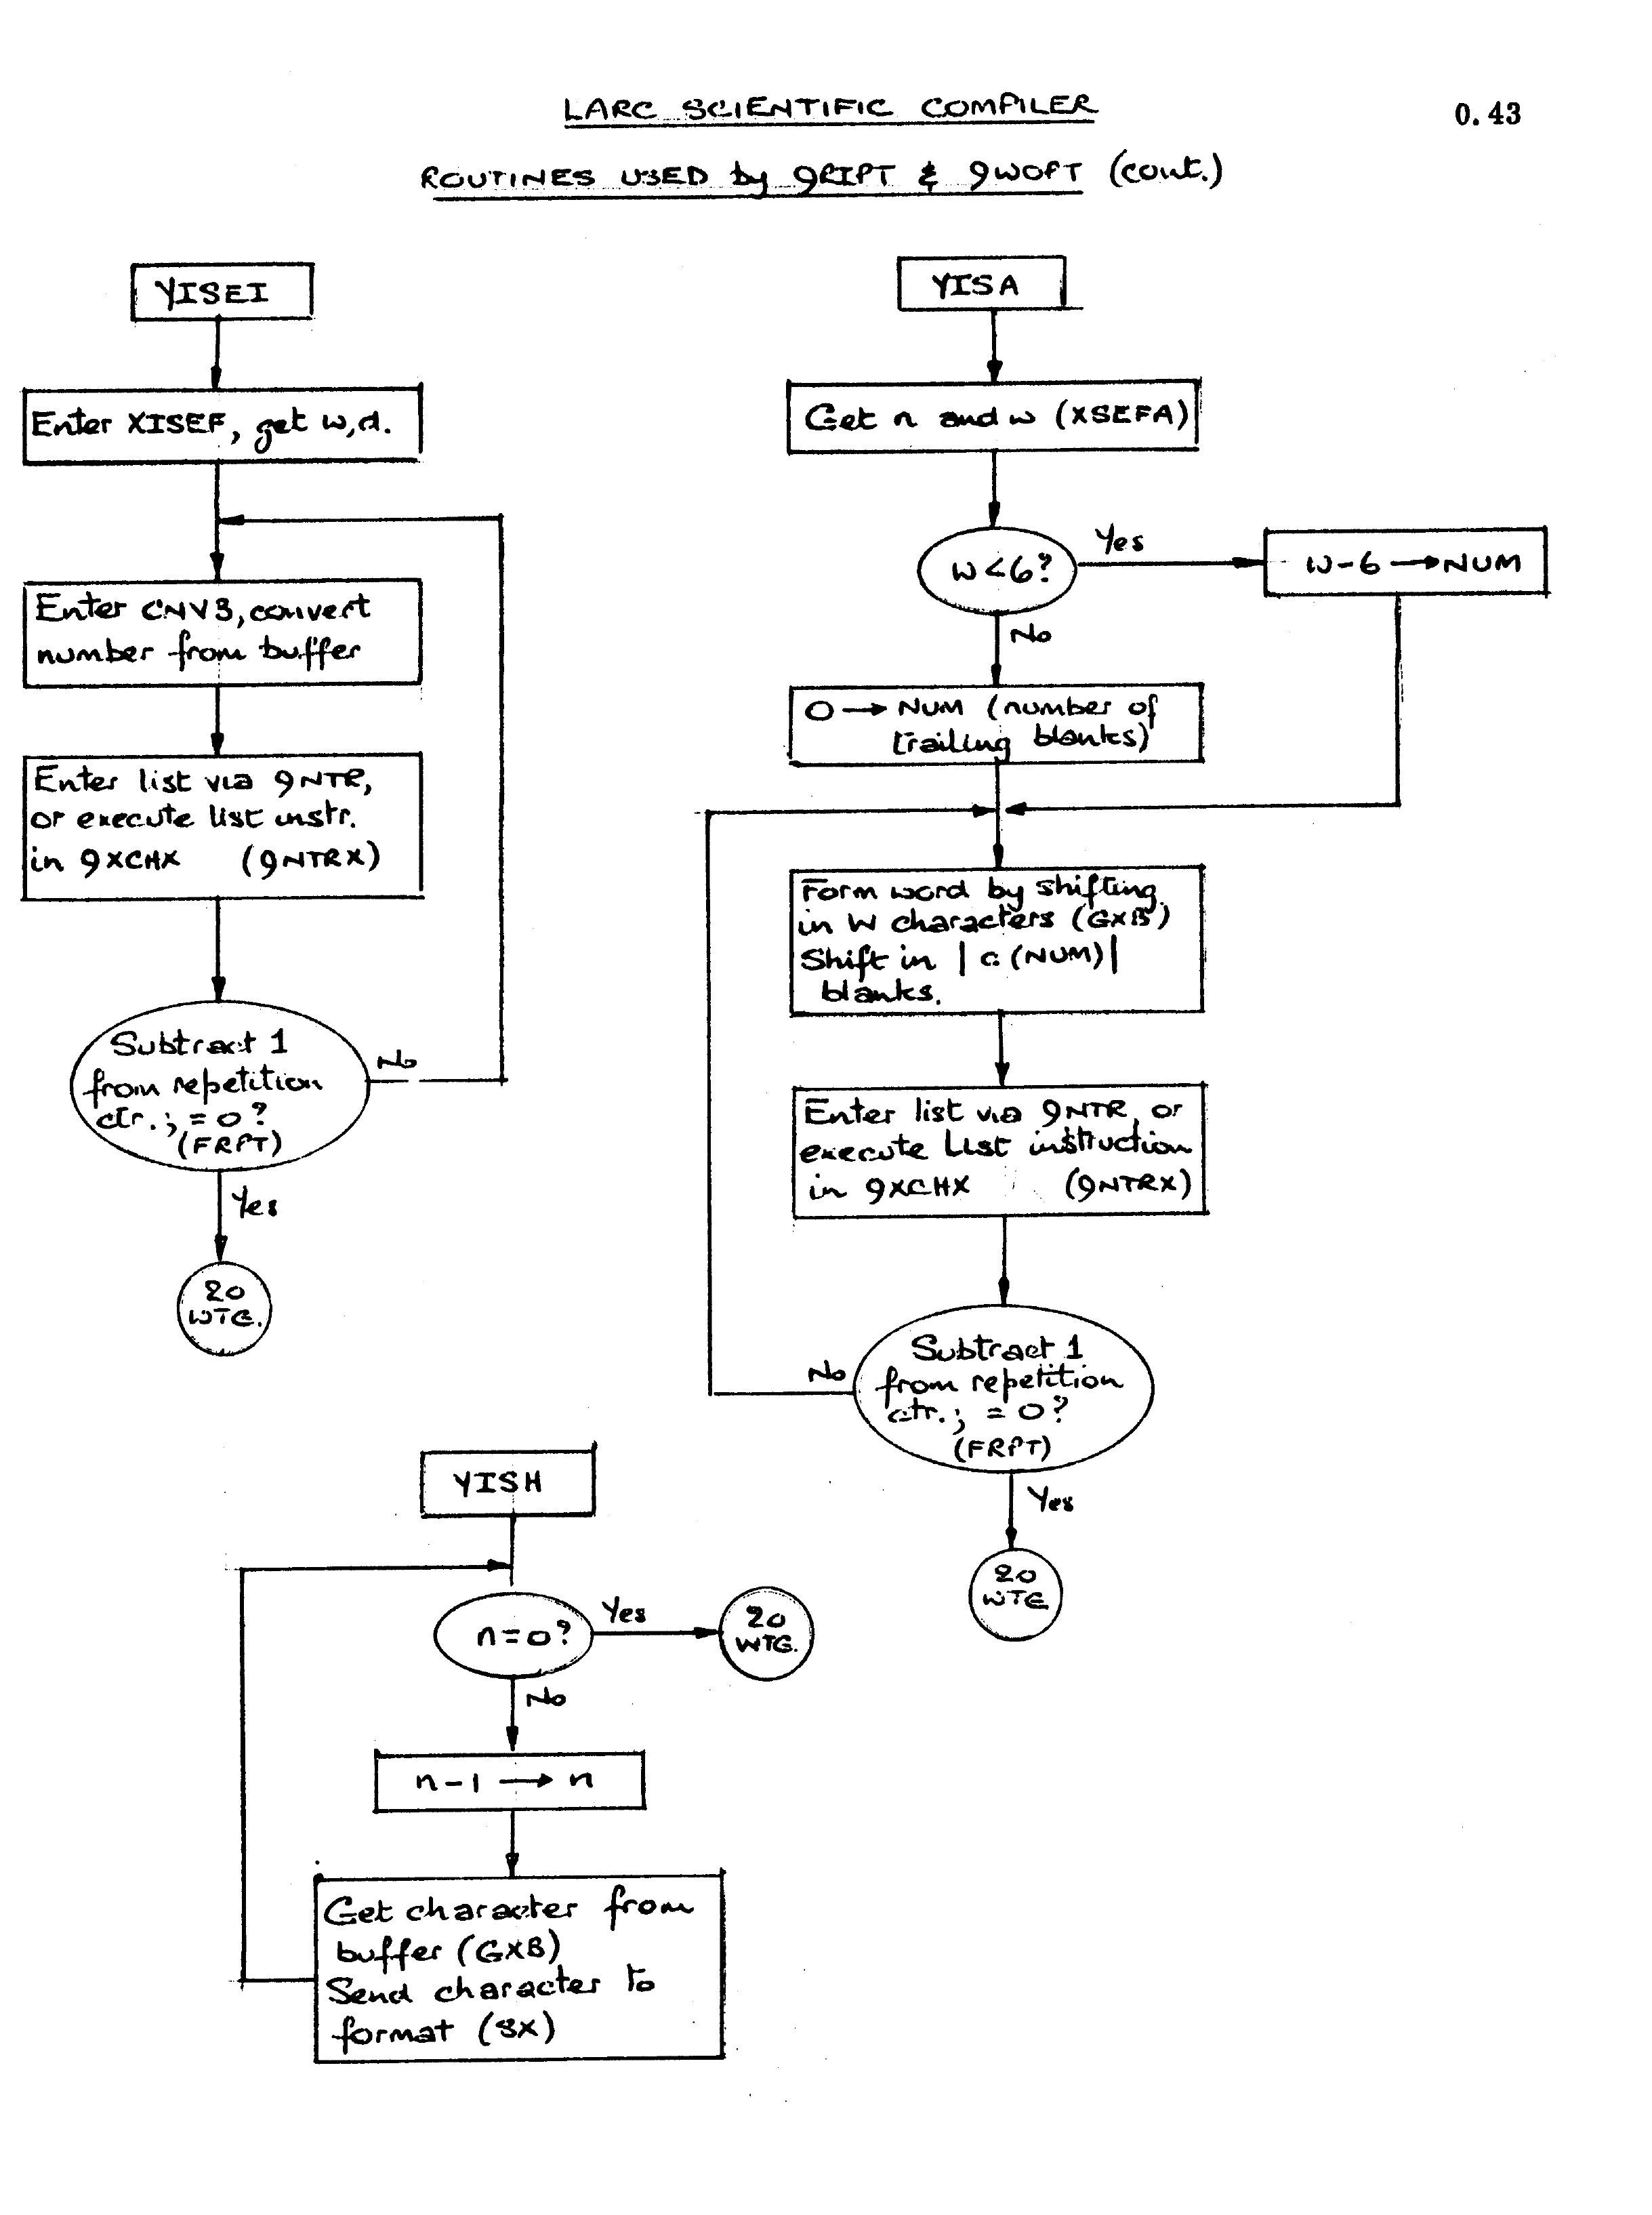 LARC SCIENTIFIC COMPILER
0.43
ROUTINES USED by 9RIPT & 9WOPT (cont.)
YISEI
Enter XISEF, get w,d.
Enter CNV3, convert
number from buffer
Enter list via 9NTR,
or execute list instr.
in 9XCHX (9NTRX)
Subtract 1
from repetition
ctr.; = 0?
(FRPT)
No
Yes
20
WTG.
YISA
Get n and w (XSEFA)
w<6?
Yes
w-6 → NUM
No
0 → NUM (number of
trailing blanks)
Form word by shifting
in W characters (GXB)
Shift in |c(NUM)|
blanks.
Enter list via 9NTR, or
execute List instruction
in 9XCHX (9NTRX)
Subtract 1
from repetition
ctr.; = 0?
(FRPT)
No
Yes
20
WTG
YISH
n=0?
Yes
20
WTG.
No
n-1 → n
Get character from
buffer (GXB)
Send character to
format (SX)